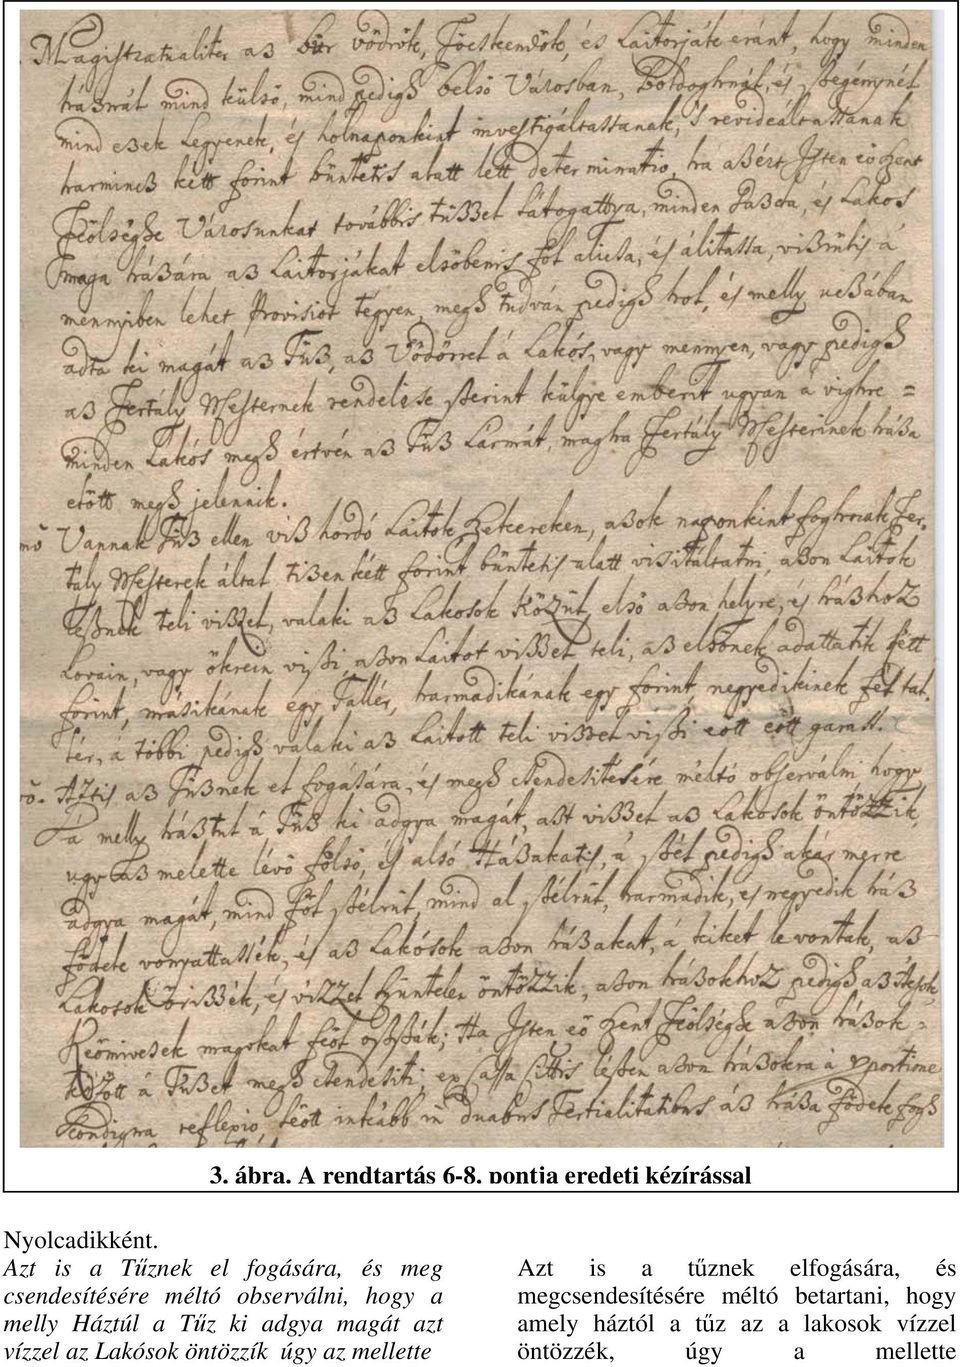 Magistratualiter az bör vödrök, Föcskendök, és Laitorják eránt, hogy minden
háznál mind külsö, mind pedigh belsö Városban, Boldoghnál, és szegénynél
mind ezek Legyenek, és holnaponkint investigáltassanak, s revideáltassanak
harmincz kétt forint büntetés alatt lett determinatio, ha azért Isten eö Szent
Feölséghe Városunkat továbbis tüzzel látogattya, minden Gazda, és Lakos
maga házára az Laitorjákat elsöbenis föl alicsa, és álitassa, vizrülis á
mennyiben lehet Provisiot tégyen, megh tudván pedigh hol, és melly uczában
adta ki magát az Tüz, az Vödörrel á Lakós, vagy mennyen, vagy pedigh
az Fertály Mesternek rendelése szerint küldgye emberit ugyan a víghre =
minden Lakós megh értvén az Tüz Larmát, magha Fertály Mesterinek háza
elött megh jelennik.
mo Vannak Tüz ellen viz hordó Laitok Szekereken, azok naponkint foghnak Fer,
tály Mesterek által tizenkétt forint büntetis alatt visitáltatni, azon Laitok
lesznek teli vizzel, valaki az Lakosok közzül elsö azon helyre, és házhoz
Lovain, vagy ökrein viszi azon Laitot vizzel teli, az elsönek adattatik kétt
forint, másikának egy Tallér, harmadikának egy forint, negyedikinek fél tal,
lér, á többi pedigh valaki az Laitott teli vizzel viszi eött eött garast.
vo. Aztis az Tüznek el fogására, és megh csendesitésére méltó observálni hogy
á melly háztul á Tüz ki adgya magát, azt vizzel az Lakosok öntözzik,
ugy az melette lévö fölsö, és alsó Házakatis, á szél pedigh akár merre
adgya magát, mind föl szélrül, mind al szélrül, harmadik, és negyedik ház
födele vonyattassék, és az Lakósok azon házakat, á kiket le vontak, az
Lakosok örizzék, és vizzel szüntelen öntözzik, azon házokhoz pedigh az Átsok,
Keömivesek magokat föl oszszák; Ha Isten eö Szent Feölséghe azon házok =
között á Tüzet megh csendesiti, ex Cassa Civitatis lészen azon házokra á proportione
condigna reflexio, söött inkább in duabus Tertialitatibus áz háza födele fogh
3. ábra. A rendtartás 6-8. pontja eredeti kézírással
Nyolcadikként.
Azt is a Tűznek el fogására, és meg
csendesítésére méltó observálni, hogy a
melly Háztúl a Tűz ki adgya magát azt
vízzel az Lakósok öntözzík úgy az mellette
Azt is a tűznek elfogására, és
megcsendesítésére méltó betartani, hogy
amely háztól a tűz az a lakosok vízzel
öntözzék, úgy a mellette